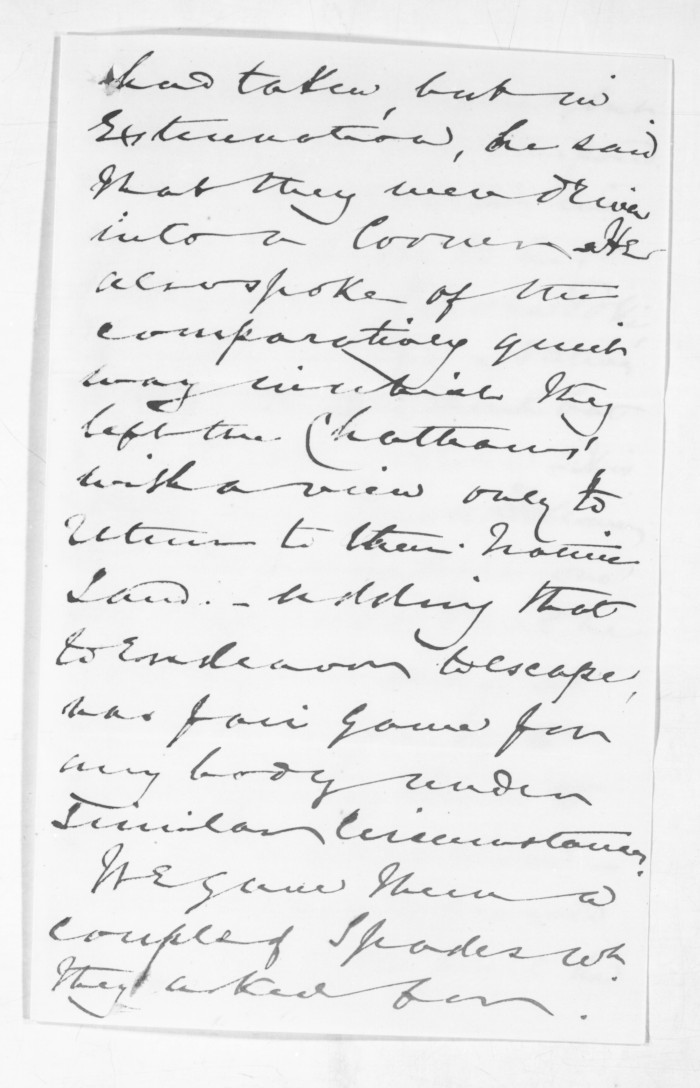 had taken, but in
Extenuation, he said
that they were driven
into a Corner. He
also spoke of the
comparatively quiet
way in which they
left the Chathams'
with a view only to
return to their Native
Land. - adding that
to Endeavor to escape,
was fair Game for
any body under
Similar Circumstances.
We gave them a
couple of Spades wh.
they asked for.